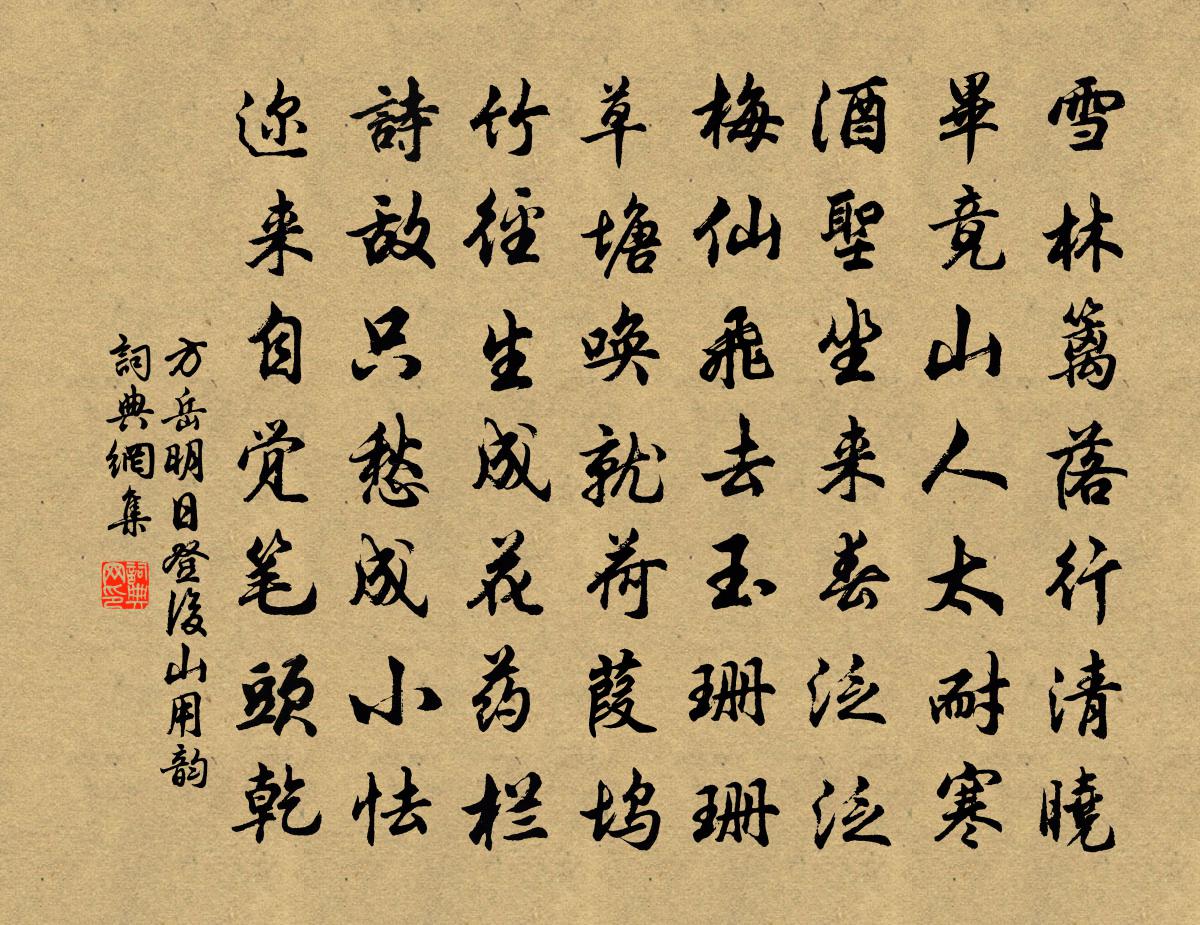 雪林篱落行清曉
畢竟山人太耐寒
酒聖坐来春泛泛
梅仙飛去玉珊珊
草塘唤就荷葭坞
竹徑生成花药栏
詩敌只愁成小怯
迩来自觉笔頭乾
方岳明日登後山用韵
詞典網集
詞典网印